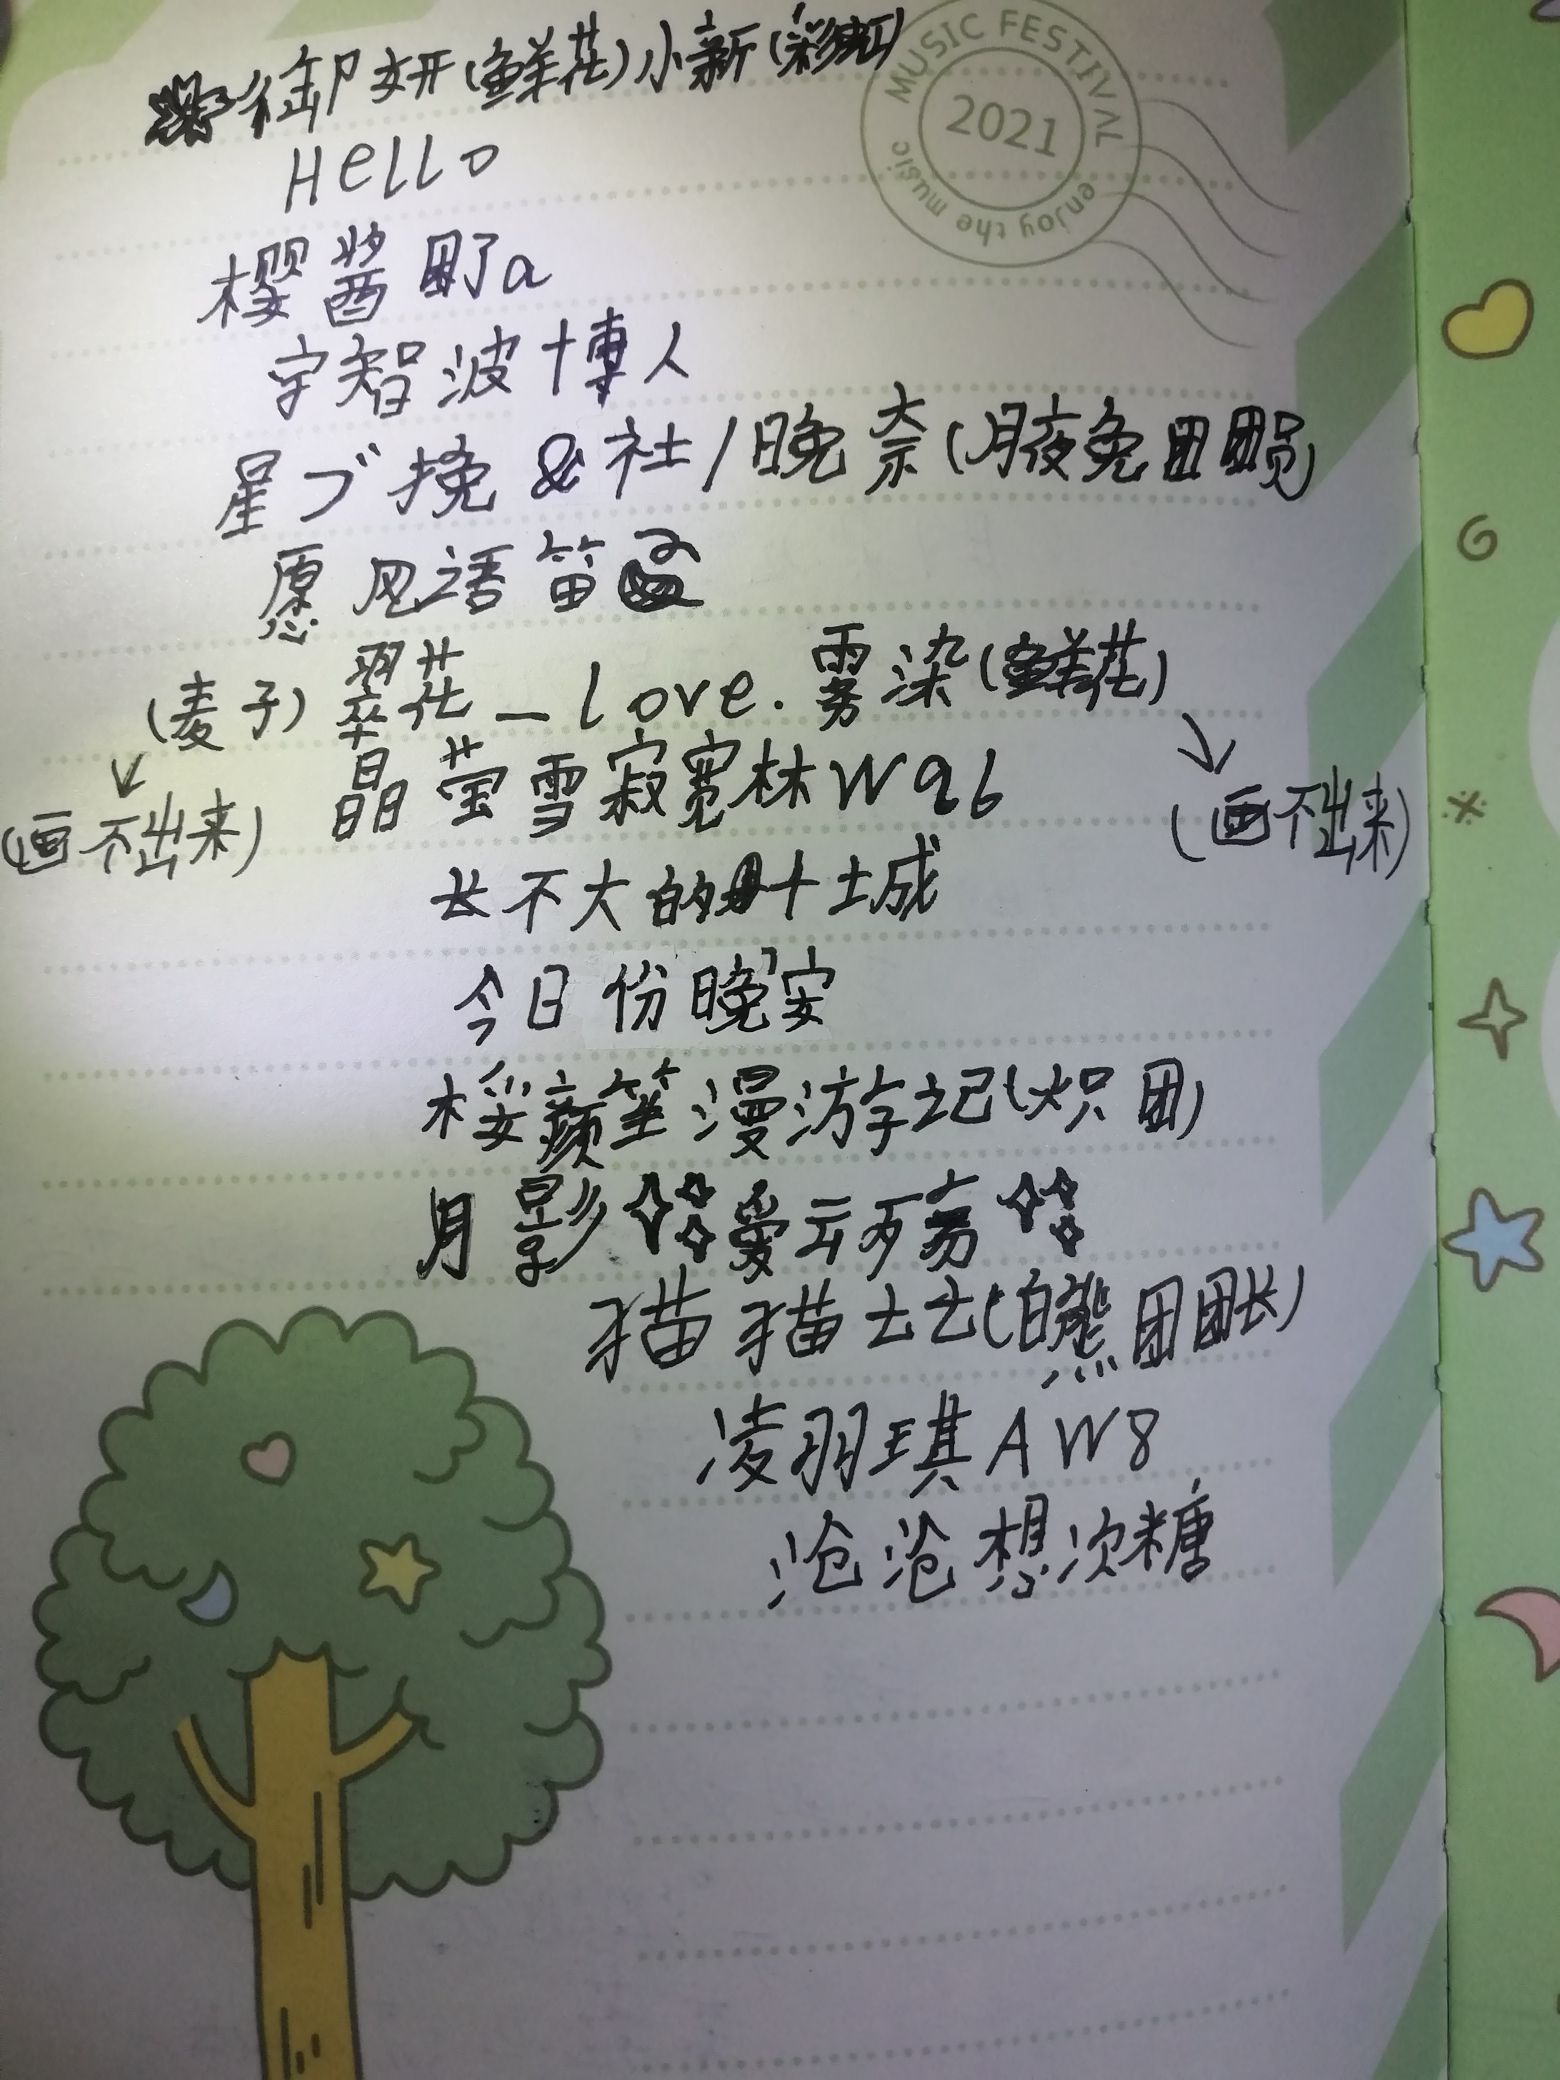 御妍(鲜花)小新(彩虹)
MUSIC FESTIVAL
2021
enjoy the music
Hello
樱酱町a
宇智波博人
星ブ挽&社/晚奈(月夜兔团团员)
愿风语笛
(麦子)翠花_love.雾染(鲜花)
(画不出来)
晶莹雪寂宽林W96
(画不出来)
长不大的叶土城
今日份晚安
桜颜笙漫游记(炽团)
月影
猫猫士士(白熊团团长)
凌羽琪AW8
沧沧想次糖